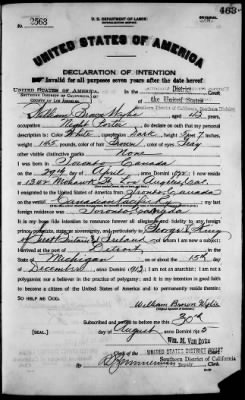 463
U. S. DEPARTMENT OF LABOR
NATURALIZATION SERVICE
No. 2563
UNITED STATES OF AMERICA
DECLARATION OF INTENTION
Invalid for all purposes seven years after the date hereof
UNITED STATES OF AMERICA
District
SOUTHERN DISTRICT OF CALIFORNIA
COUNTY OF LOS ANGELES
the United States
Southern District of California, Southern Division
I, William Brown Wylie, aged 43 years,
occupation, do declare on oath that my personal
description is: Color White, complexion Dark, height 5 feet 7 inches,
weight 165 pounds, color of hair Brown, color of eyes Gray
other visible distinctive marks None
I was born in Toronto Canada
on the 29th day of April, anno Domini; I now reside
at Los Angeles, Cal.
I emigrated to the United States of America from Toronto Canada
on the vessel Canadian Pacific Ry; my last
foreign residence was Toronto Canada
It is my bona fide intention to renounce forever all allegiance and fidelity to any foreign
prince, potentate, state, or sovereignty, and particularly to George V, King
of Great Britain & Ireland, of whom I am now a subject;
I arrived at the port of Detroit, in the
State of Michigan, on or about the 15th day
of December, anno Domini 1913; I am not an anarchist; I am not a
polygamist nor a believer in the practice of polygamy; and it is my intention in good faith
to become a citizen of the United States of America and to permanently reside therein:
SO HELP ME GOD.
William Brown Wylie
Subscribed and sworn to before me this 30th
[SEAL] day of August, anno Domini
Wm. M. Van Dyke
Clerk of the UNITED STATES DISTRICT COURT
Southern District of California
By Deputy Clerk.